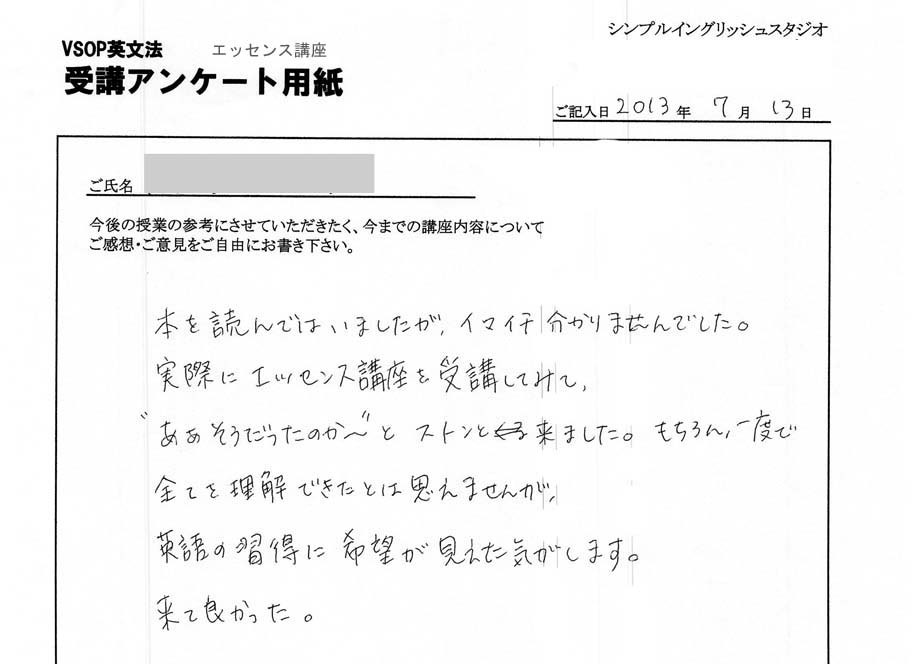 シンプルイングリッシュスタジオ
VSOP英文法 エッセンス講座
受講アンケート用紙
ご記入日 2013 年 7 月 13 日
ご氏名
今後の授業の参考にさせていただきたく、今までの講座内容について
ご感想・ご意見をご自由にお書き下さい。
本を読んではいましたが、イマイチ分かりませんでした。
実際にエッセンス講座を受講してみて、
“ああそうだったのか〜”とストンと来ました。もちろん、一度で
全てを理解できたとは思えませんが、
英語の習得に希望が見えた気がします。
来て良かった。